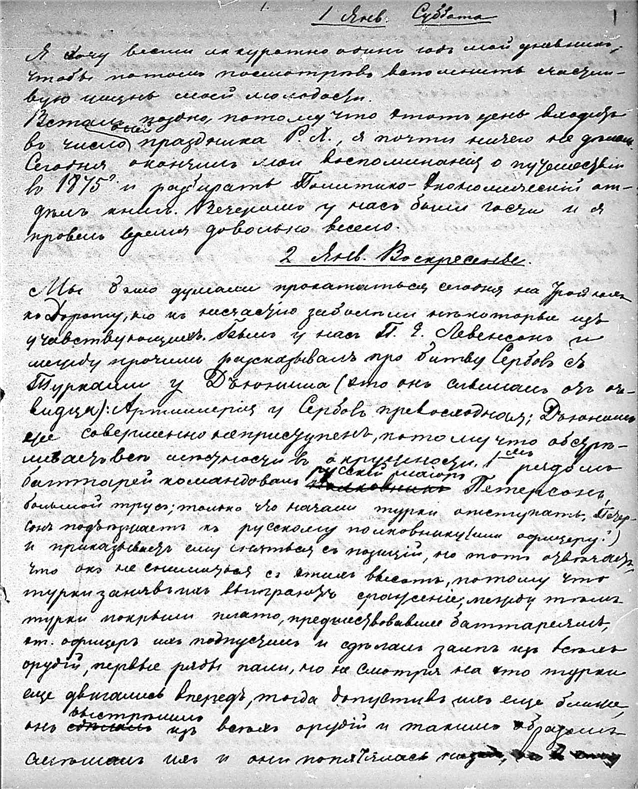 1 Янв. Суббота 1
Я хочу вести аккуратно один годъ мой дневникъ,
чтобы потомъ посмотрѣвъ вспомнить счастли-
вую жизнь моей молодости.
Всталъ поздно, потому что этотъ день входитъ
въ число праздника Р. Х., я почти ничего не дѣлалъ.
Сегодня окончилъ мои воспоминанія о путешествіи
въ 1875 и разбирать Политико-экономическій от-
дѣлъ книгъ. Вечеромъ у насъ были гости и я
провелъ время довольно весело.
2 Янв. Воскресенье.
Мы было думали прокататься сегодня на
ко къ несчастью заболѣли нѣкоторые изъ
участвующихъ. Былъ у насъ П. Левенсонъ и
между прочимъ разсказывалъ про битву Сербовъ съ
Турками у Дьюниша (это онъ слышалъ отъ оче-
видца): Артиллерія у Сербовъ превосходная; Дьюнишъ
еще совершенно неприступенъ, потому что обстрѣ-
ливаетъ всѣ мѣстности въ окружности, рядомъ
баттареей командовалъ русскій маіоръ полковникъ Петерсонъ,
большой трусъ; только что начали турки отступать, Петер-
сонъ подъѣзжаетъ къ русскому полковнику (или офицеру?)
и приказываетъ ему сняться съ позицій, но тотъ отвѣчаетъ,
что онъ не снимется съ этихъ высотъ, потому что
турки занявъ ихъ выиграютъ сраженіе; между тѣмъ
турки покрыли плато, предшествовавшее баттареямъ,
офицеръ ихъ подпустилъ и сдѣлалъ залпъ изъ всѣхъ
орудій первые ряды пали, но не смотря на это турки
еще двигались впередъ, тогда допустивъ ихъ еще ближе,
онъ выстрѣлилъ сдѣлалъ изъ всѣхъ орудій и такимъ образомъ
смѣшалъ ихъ и они попятились назадъ,